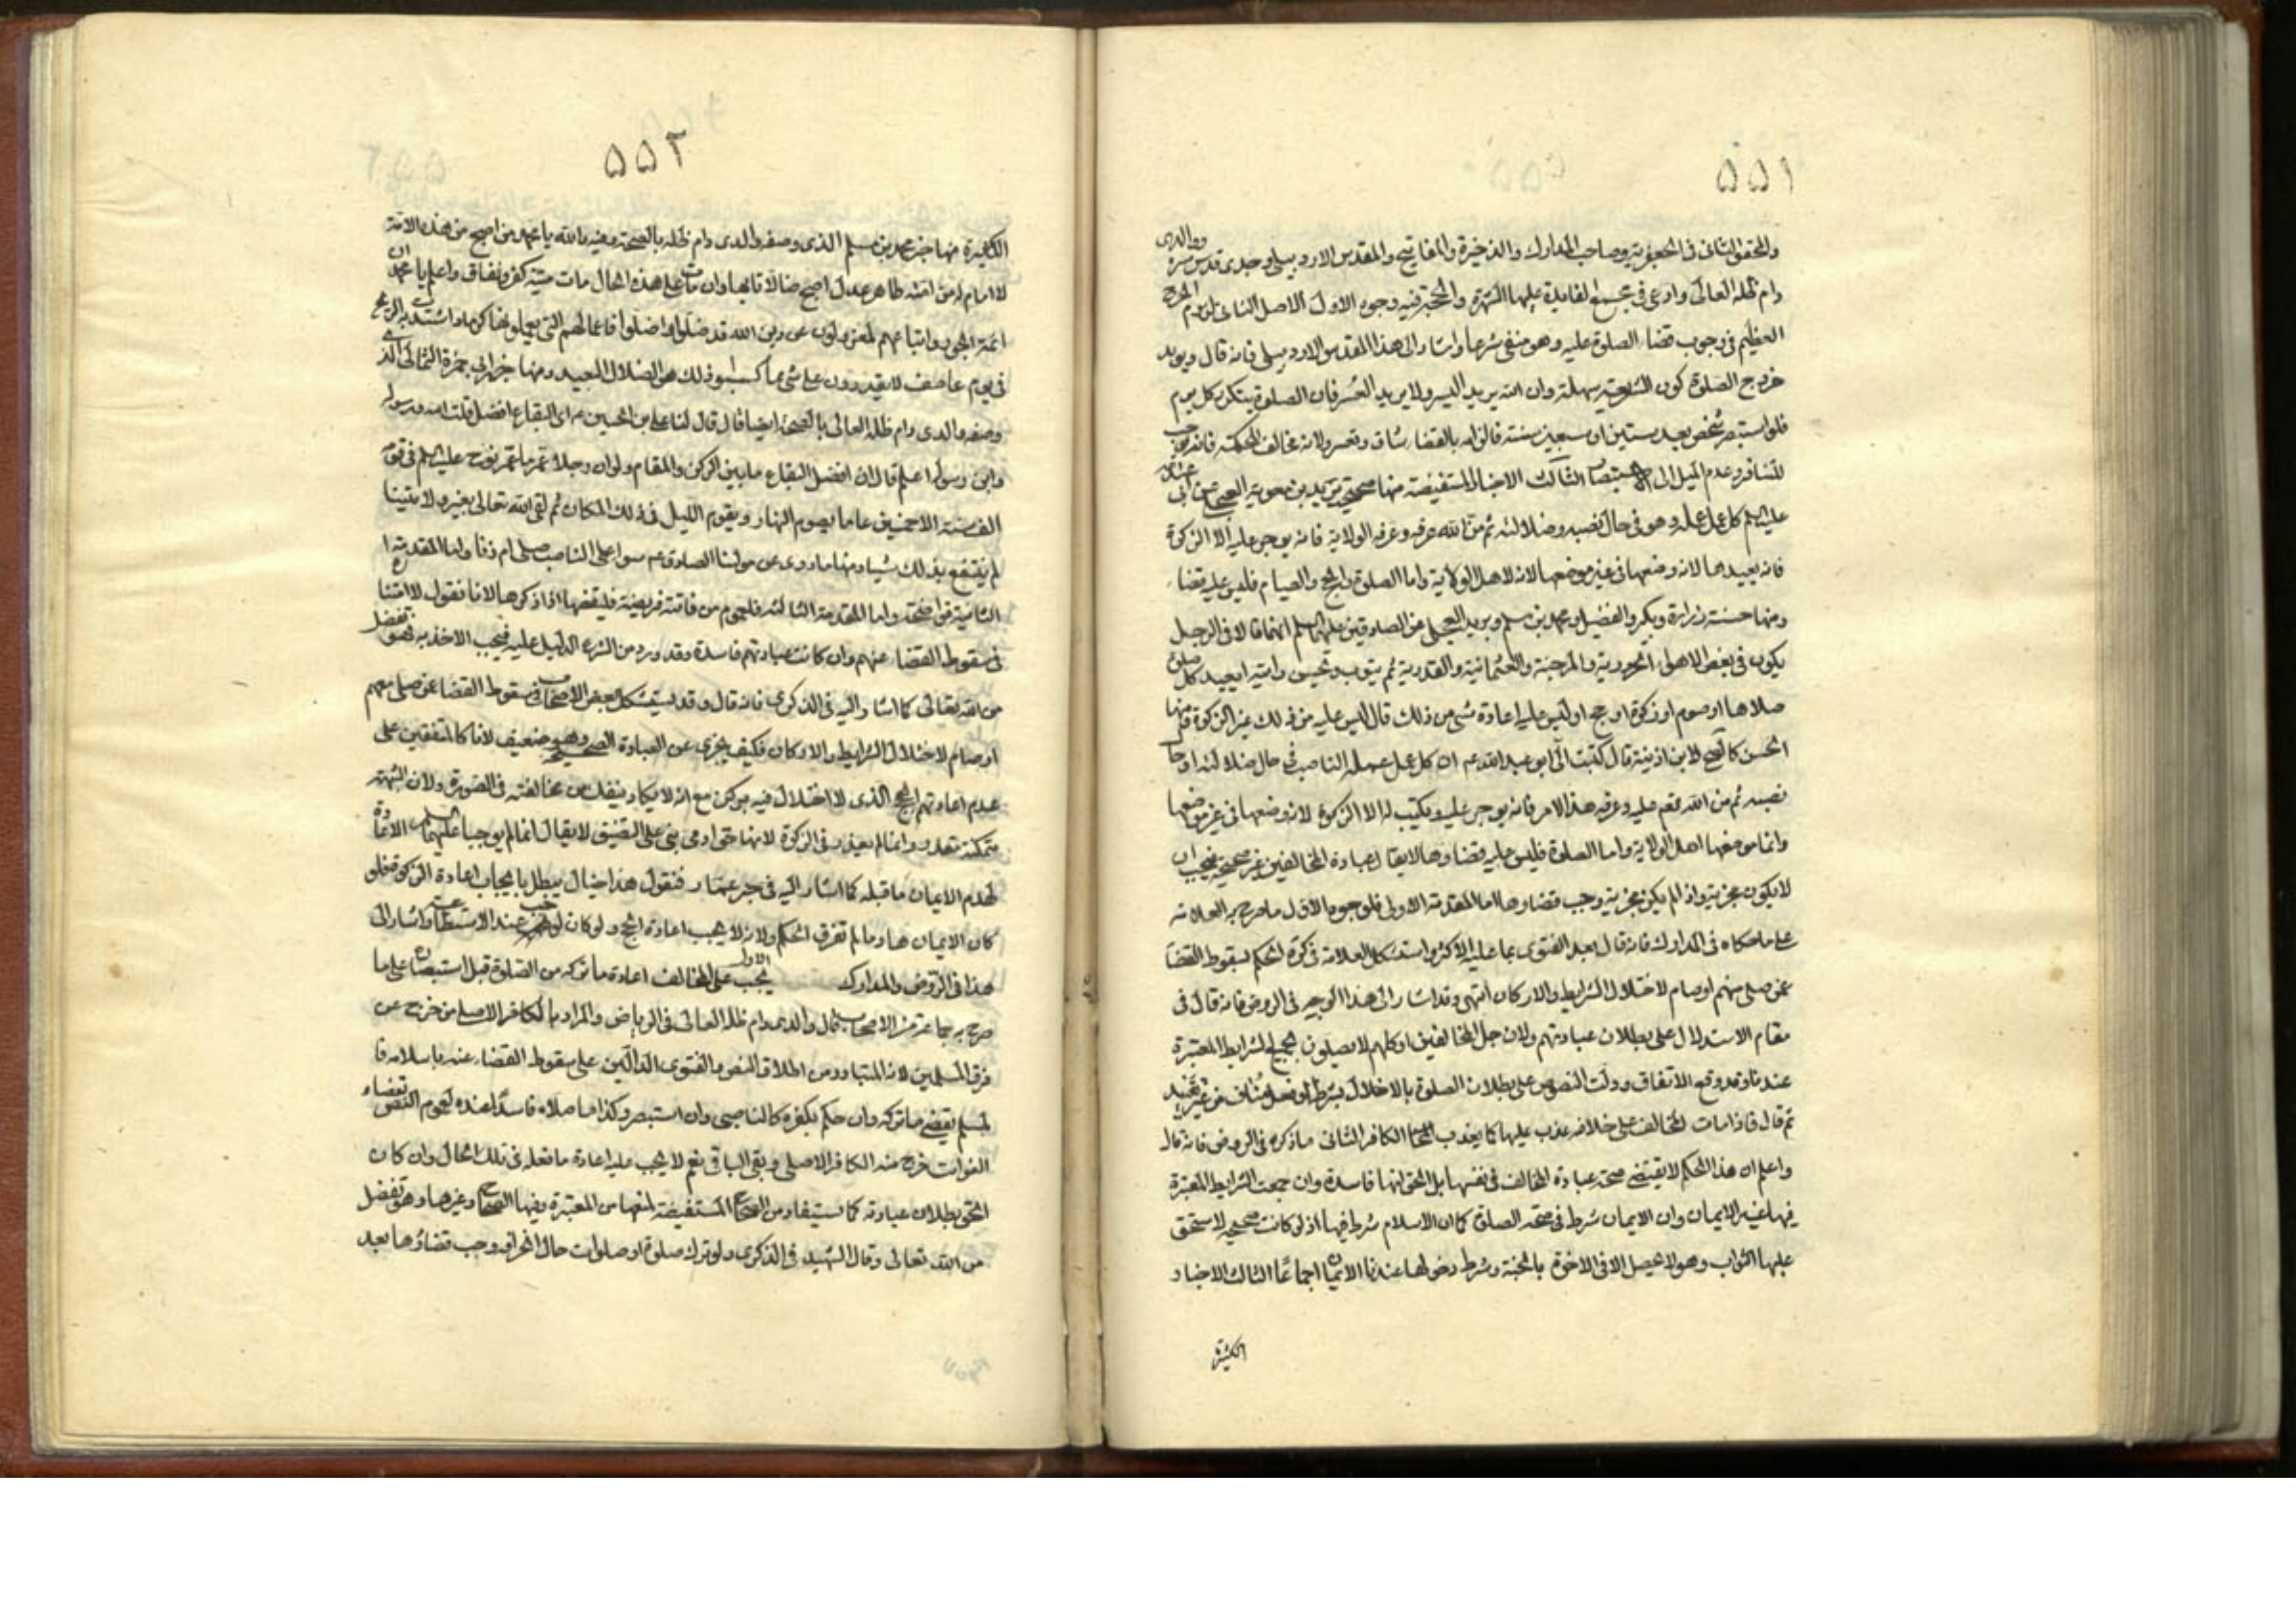 ٥٥١
والمحقق الثانى فى الجعفرية وصاحب المدارك والذخيرة والمفاتيح والمقدس الاردبيلى وجدى قدس سره ووالدى
دام ظله العالى وادعى فى الفايدة عليها الشهرة والحجة فيه وجوه الاول الاصل الثانى لزوم الحرج
العظيم فى وجوب قضاء الصلوة عليه وهو منفى شرعا واشار الى هذا المقدس الاردبيلى فانه قال ويويد
خروج الصلوة كون الشريعة سهلة وان الله يريد اليسر ولا يريد العسر فان الصلوة يتكرر كل يوم
فلو استبصر شخص بعد ستين او سبعين سنة فالزامه بالقضاء شاق وتعسر ولانه مخالف للحكمة فانه
للتنافر وعدم الميل الى الاستبصار الثالث الاخبار المستفيضة منها صحيحة بريد بن معوية العجلى عن ابى
عليه السلم كل عمل عمله وهو فى حال نصبه وضلالته ثم من الله عليه وعرفه الولاية فانه يوجر عليه الا الزكوة
فانه يعيدها لانه وضعها فى غير موضعها لانه لاهل الولاية واما الصلوة والحج والصيام فليس عليه قضاء
ومنها حسنة زرارة وبكير والفضيل ومحمد بن مسلم وبريد العجلى عن الصادقين عليهما السلم انهما قالا فى الرجل
يكون فى بعض الاهواء الحرورية والمرجئة والعثمانية والقدرية ثم يتوب ويحسن رايه ايعيد كل صلوة
صلاها او صوم او زكوة او حج او ليس عليه اعادة شى من ذلك قال ليس عليه من ذلك غير الزكوة ومنها
الحسن كالصحيح لابن اذينة قال كتب الى ابو عبد الله ع ان كل عمل عمله الناصب فى حال ضلالته او حال
نصبه ثم من الله عليه وعرفه هذا الامر فانه يوجر عليه ويكتب له الا الزكوة لانه وضعها فى غير موضعها
وانما موضعها اهل الولاية واما الصلوة فليس عليه قضاوها لا يقال عبادة المخالفين غير صحيحة فيجب ان
لا يكون مجزية واذا لم يكن مجزية وجب قضاوها اما المقدمة الاولى فلوجوه الاول ما صرح به العلامة
على ما حكاه فى المدارك فانه قال بعد الفتوى بما عليه الاكثر واستشكل العلامة فى كره الحكم بسقوط القضاء
عمن صلى منهم او صام لاختلال الشرايط والاركان انتهى وقد اشار الى هذا الوجه فى الروض فانه قال فى
مقام الاستدلال على بطلان عبادتهم ولان جل المخالفين او كلهم لا يصلون بجميع الشرايط المعتبرة
عندنا وقد وقع الاتفاق ودلت النصوص على بطلان الصلوة بالاخلال بشرط او فعل مناف من غير
ثم قال فاذا مات المخالف على خلافه عذب عليها كما يعذب الكافر الثانى ما ذكره فى الروض فانه قال
واعلم ان هذا الحكم لا يقتضى صحة عبادة المخالف فى نفسها بل الحق انها فاسدة وان جمعت الشرايط المعتبرة
فيها غير الايمان وان الايمان شرط فى صحة الصلوة كما ان الاسلام شرط فيها اذ لو كانت صحيحة لاستحق
عليها الثواب وهو لا يحصل الا فى الاخرة بالجنة وشرط دخولها عندنا الايمان اجماعا الثالث الاخبار
الكثيرة
٥٥٢
الكثيرة منها خبر محمد بن مسلم الذى وصفه والدى دام ظله بالصحة وفيه والله يا محمد من اصبح من هذه الامة
لا امام له من الله ظاهر عدل اصبح ضالا تايها وان مات على هذه الحال مات ميتة كفر ونفاق واعلم يا محمد ان
ائمة الجور واتباعهم لمعزولون عن دين الله قد ضلوا واضلوا فاعمالهم التى يعملونها كرماد اشتدت به الريح
فى يوم عاصف لا يقدرون على شى مما كسبوا ذلك هو الضلال البعيد ومنها خبر ابى حمزة الثمالى الذى
وصفه والدى دام ظله العالى بالصحة ايضا قال قال لنا على بن الحسين ع اى البقاع افضل قلت الله ورسوله
وابن رسوله اعلم قال ان افضل البقاع ما بين الركن والمقام ولو ان رجلا عمر ما عمر نوح عليه السلم فى قومه
الف سنة الا خمسين عاما يصوم النهار ويقوم الليل فى ذلك المكان ثم لقى الله تعالى بغير ولايتنا
لم ينتفع بذلك شيئا ومنها ما روى عن مولنا الصادق ع سواء على الناصب صلى ام زنا واما المقدمة
الثانية فواضحة واما المقدمة الثالثة فلعموم من فاتته فريضة فليقضها اذا ذكرها لانا نقول لا امتناع
فى سقوط القضاء عنهم وان كانت عبادتهم فاسدة وقد ورد من الشرع الدليل عليه فيجب الاخذ به فهو تفضل
من الله تعالى كما اشار اليه فى الذكرى فانه قال وقد يستشكل بعض الاصحاب فى سقوط القضاء عمن صلى منهم
او صام لاختلال الشرايط والاركان فكيف يجزى عن العبادة الصحيحة وهو ضعيف لانا كالمتفقين على
عدم اعادتهم الحج الذى لا اختلال فيه بركن مع انه لا يكاد ينفك عن مخالفته فى الصورة ولان الشبهة
متمكنة فعذر وانما لم يعذر فى الزكوة لانها حق ادمى بنى على التضييق لا يقال انما لم يوجبا عليهما السلم الاعادة
لهدم الايمان ما قبله كما اشار اليه فى خبر عمار فنقول هذا خيال يبطل بايجاب اعادة الزكوة فلو
كان الايمان هادما لم تفرق الحكم ولانه لا يجب اعادة الحج ولو كان لوجب عند الاستطاعة واشار الى
هذا فى الروض والمدارك الاول يجب على المخالف اعادة ما تركه من الصلوة قبل استبصاره على ما
صرح به جماعة من الاصحاب قال والدى دام ظله العالى فى الرياض والمراد بالكافر الاصلى من خرج عن
فرق المسلمين لانه المتبادر من اطلاق النص والفتوى الدالين على سقوط القضاء عنه باسلامه
لمسلم يقضى ما تركه وان حكم بكفره كالناصبى وان استبصر وكذا ما صلاه فاسدا عنده لعموم النص بقضاء
الفوائت خرج منه الكافر الاصلى وبقى الباقى نعم لا يجب عليه اعادة ما فعله فى تلك الحال وان كان
الحق بطلان عبادته كما يستفاد من الصحاح المستفيضة لنصها من المعتبرة وفيها الصحاح وغيرها وهو تفضل
من الله تعالى وقال الشهيد فى الذكرى ولو ترك صلوة او صلوات حال انحرافه وجب قضاؤها بعد